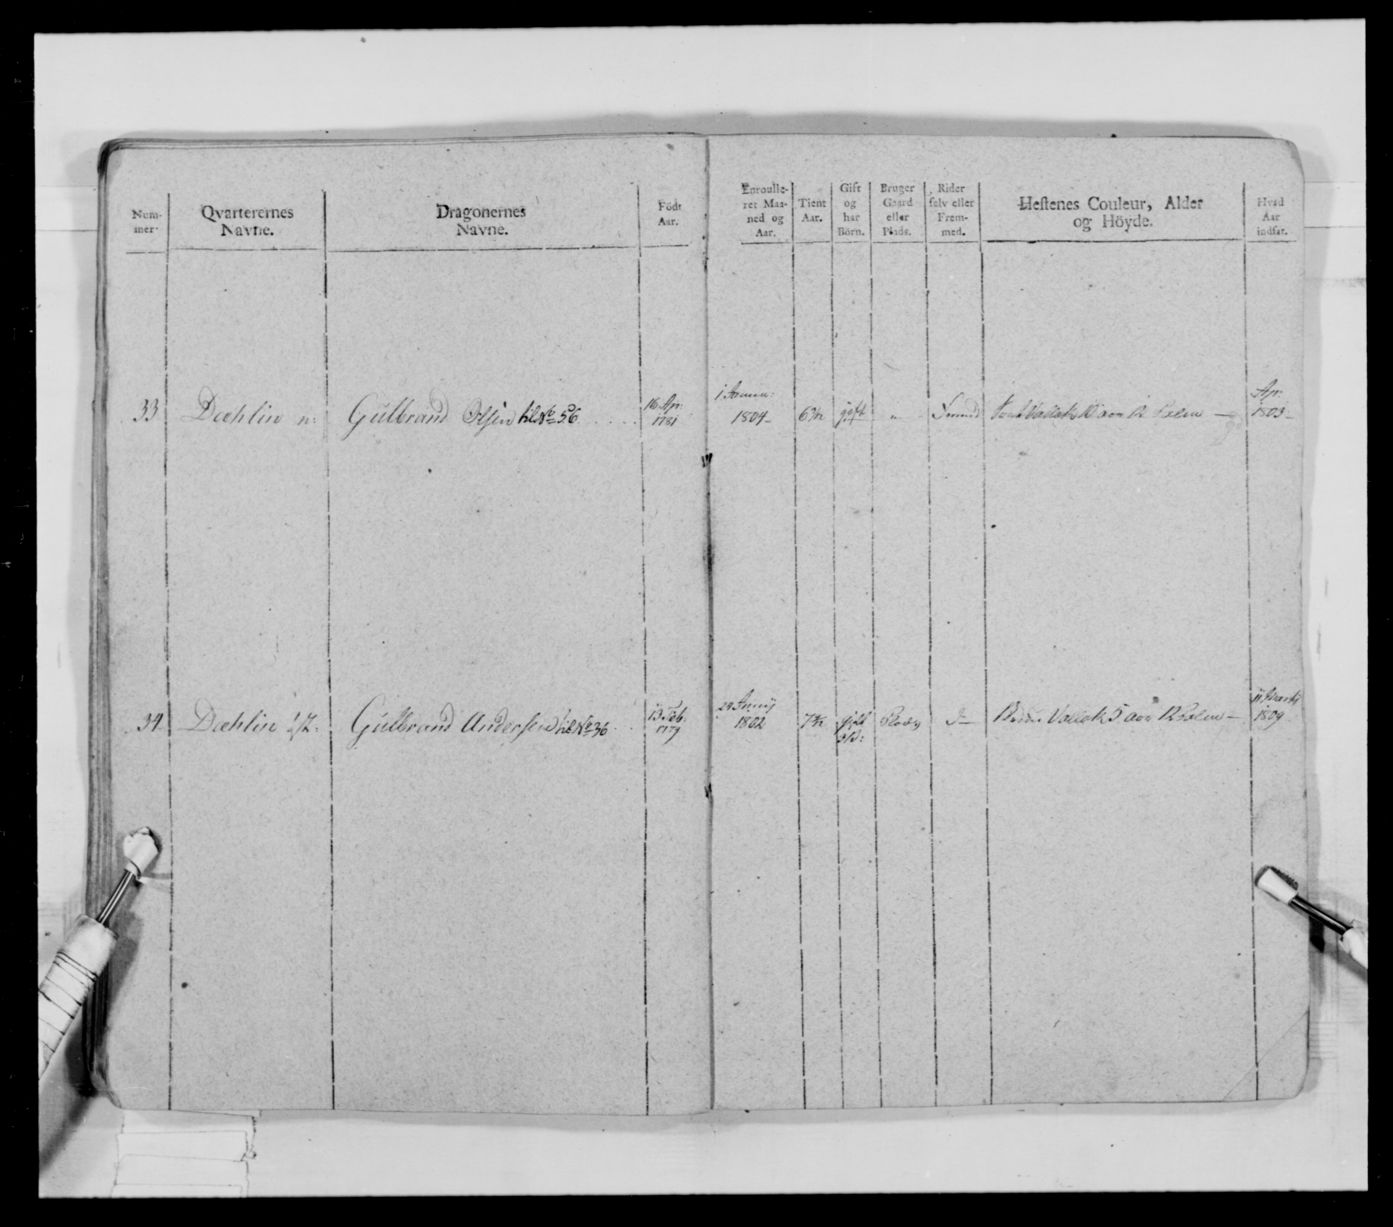 Num-
mer.
Qvarterernes
Navne.
Dragonernes
Navne.
Födt
Aar.
Enroulle-
ret Maa-
ned og
Aar.
Tient
Aar.
Gift
og
har
Börn.
Bruger
Gaard
eller
Plads.
Rider
selv eller
Frem-
med.
Hestenes Couleur, Alder
og Höyde.
Hvad
Aar
indsat.
33 Dæhlin n: Gulbrand Olsen til No 56
16 Apr:
1781
1804
gift
12
Apr:
1803
34 Dæhlin Gulbrand Andersen til No 36
13 Feb.
1779
1802
gift
Vallak 5 aar
1809